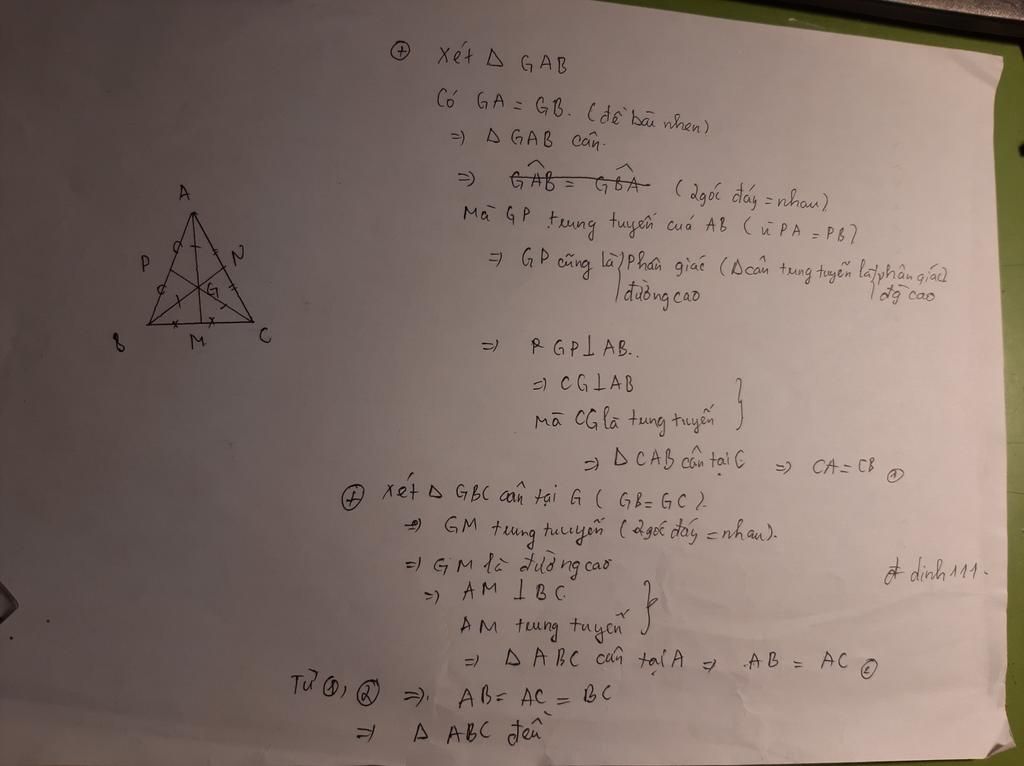 ⊕ Xét Δ GAB
Có GA = GB. (đề bài nhen)
=> Δ GAB cân.
=> GÂB = GB̂A (2góc đáy = nhau)
Mà GP trung tuyến cuả AB (vì PA = PB)
=> GP cũng là phân giác (Δ cân trung tuyến là phân giác)
đường cao đg cao
=> GP ⊥ AB..
=> CG ⊥ AB
mà CG là trung tuyến
=> Δ CAB cân tại C => CA = CB ①
⊕ Xét Δ GBC cân tại G ( GB = GC ).
=> GM trung tuuyến (2góc đáy = nhau).
=> GM là đường cao
=> AM ⊥ BC
AM trung tuyến
=> Δ ABC cân tại A => AB = AC ②
Từ ①, ② =>. AB = AC = BC
=> Δ ABC đều
dinh111.
A
P
N
G
B
M
C